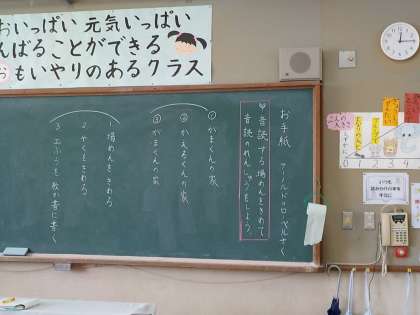 おいっぱい 元気いっぱい
んばることができる
おもいやりのあるクラス
お手紙 アーノルド=ローベルさく
音読する場めんをきめて
音読のれんしゅうをしよう。
①がまくんの家
②かえるくんの家
③がまくんの家
1 場めんをきめる
2 やくをきめる
3 くふうを教か書に書く
いつも
0 1 2 3 4